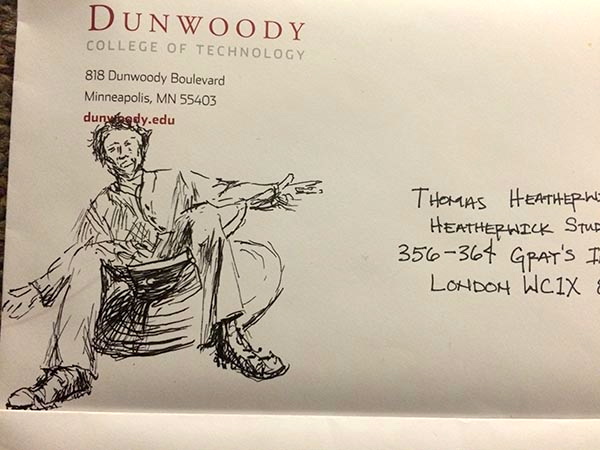 DUNWOODY
COLLEGE OF TECHNOLOGY
818 Dunwoody Boulevard
Minneapolis, MN 55403
dunwoody.edu
THOMAS HEATHERW
HEATHERWICK STUD
356-364 GRAY'S I
LONDON WC1X